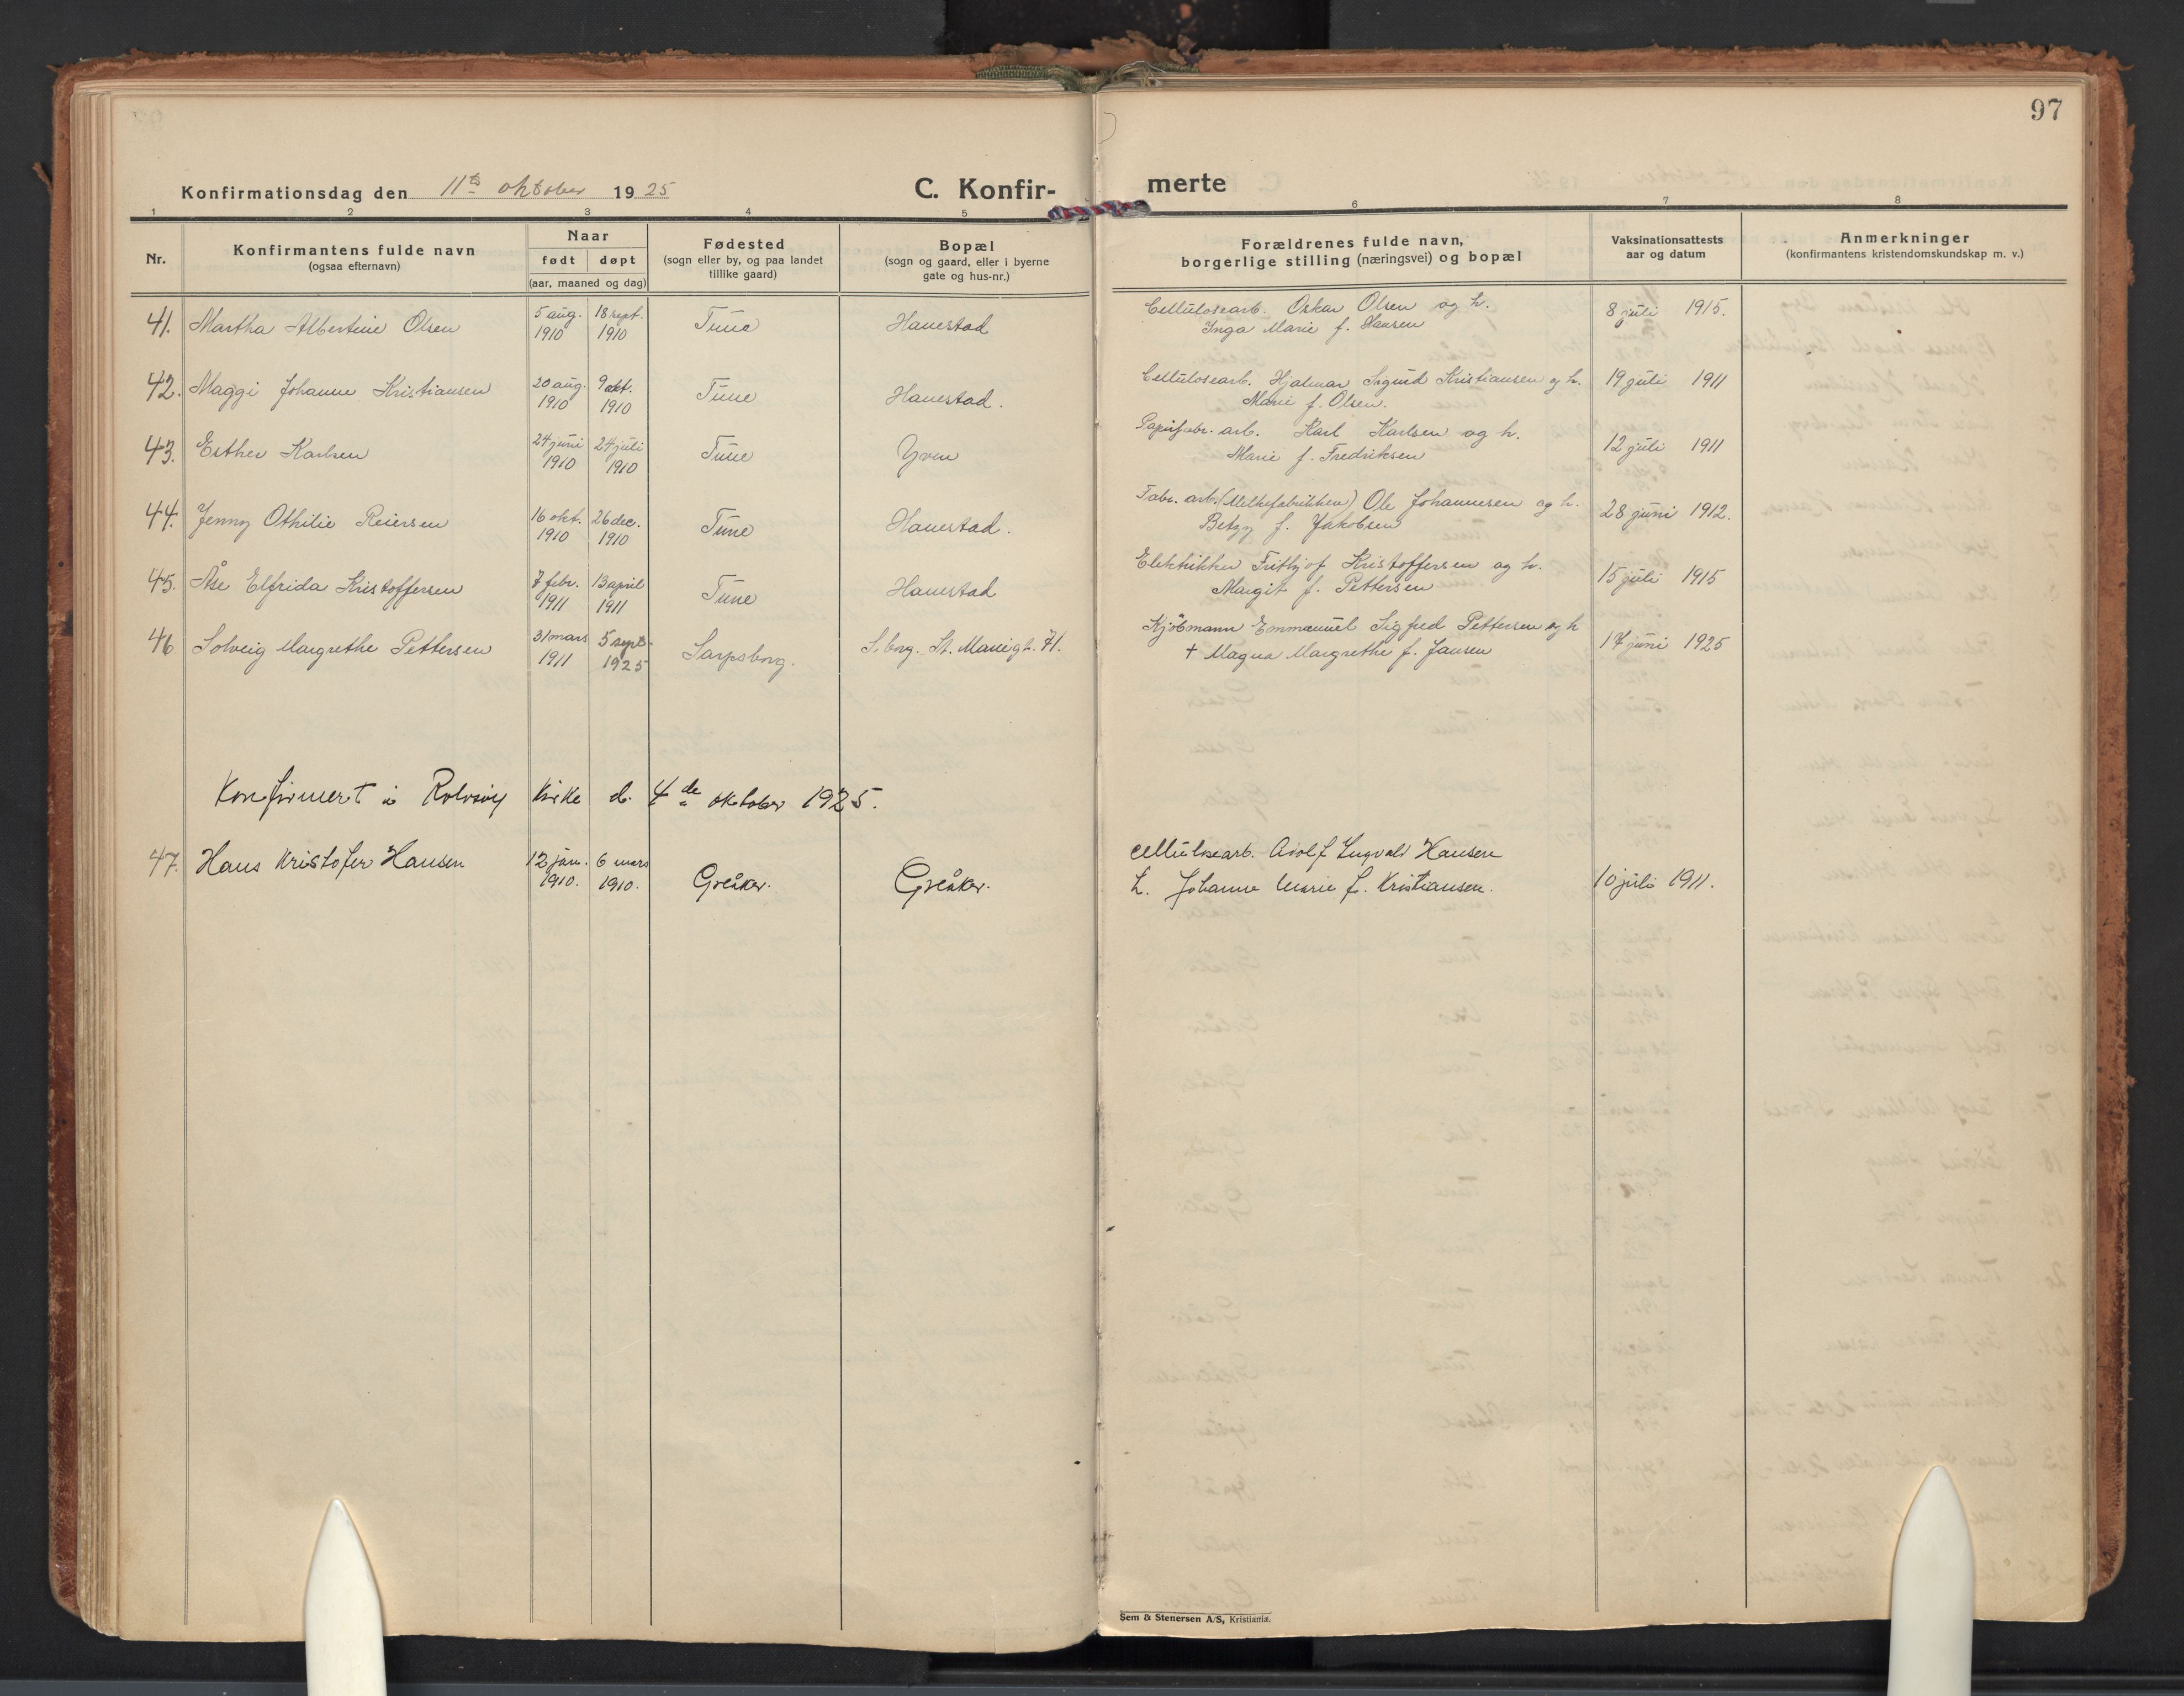 97
Konfirmationsdag den 11te oktober 1925
C. Konfir-
merte
1 2 3 4 5 6 7 8
Nr.
Konfirmantens fulde navn
(ogsaa efternavn)
Naar
født døpt
(aar, maaned og dag)
Fødested
(sogn eller by, og paa landet
tillike gaard)
Bopæl
(sogn og gaard, eller i byerne
gate og hus-nr.)
Forældrenes fulde navn,
borgerlige stilling (næringsvei) og bopæl
Vaksinationsattests
aar og datum
Anmerkninger
(konfirmantens kristendomskundskap m. v.)
41. Martha Albertine Olsen 5 aug. 1910 18 sept. 1910 Tune Hanestad Cellulosearb. Oskar Olsen og h. 8 juli 1915.
Inga Marie f. Hansen
42. Maggi Johanne Kristiansen 20 aug. 1910 9 okt. 1910 Tune Hanestad. Cellulosearb. Hjalmar Sigurd Kristiansen og h. 19 juli 1911
Marie f. Olsen.
43. Esther Karlsen 24 juni 1910 24 juli 1910 Tune Yven Papirfabr. arb. Karl Karlsen og h. 12 juli 1911
Marie f. Fredriksen
44. Jenny Othilie Reiersen 16 okt. 1910 26 dec. 1910 Tune Hanestad. Fabr. arb. (Melkefabrikken) Ole Johannesen og h. 28 juni 1912.
Betzy f. Jakobsen
45. Åse Elfrida Kristoffersen 7 febr. 1911 13 april 1911 Tune Hanestad Elektriker Fritjof Kristoffersen og h. 15 juli 1915
Margit f. Pettersen
46 Solveig Margrethe Pettersen 31 mars 1911 5 sept. 1925 Sarpsborg. S.borg. St. Mariegt. 71. Kjöbmann Emmanuel Sigfred Pettersen og h 17 juni 1925
+ Magna Margrethe f. Jansen
Konfirmert i Rolvsøy Kirke d. 4de oktober 1925.
47. Hans Kristofer Hansen 12 jan. 1910. 6 mars 1910. Greåker. Greåker. Cellulosearb. Adolf Ingvald Hansen
h. Johanne Marie f. Kristiansen. 10 juli 1911.
Sem & Stenersen A/S, Kristiania.